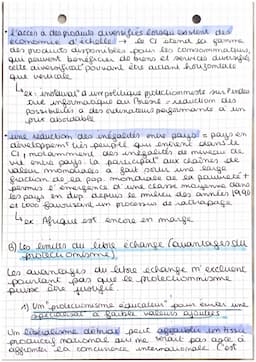 • L'accès à des produits diversifiés lorsqu'existent des
économies d'échelle → le CI étend la gamme
des produits disponibles pour les consommateurs,
qui peuvent bénéficier de biens et services diversifiés
cette diversificat° pouvant être autant horizontale
que verticale
↳ ex : d'une politique protectionniste sur l'
informatique au Brésil → réduction des
possibilités à des ordinateurs performants à un
prix abordable
• une réduction des inégalités entre pays = pays en
développement très peuplés qui entrent dans le
CI, notamment des inégalités de niveau de
vie entre pays. La participat° aux chaînes de
valeur mondiales a fait sortir une large
fraction de la pop mondiale de la pauvreté +
permis l'émergence d'une classe moyenne dans
les pays en dvp depuis le milieu des années 1990
et favorisent un processus de rattrapage
↳ ex : Afrique est encore en marge
B) Les limites du libre échange (avantages du
protectionnisme)
Les avantages du libre échange n'excluent
pourtant pas que le protectionnisme
puisse être justifié.
1) Un "protectionnisme éducateur" pour éviter une
spécialisat° à faible valeur ajoutée
Un libéralisme débridé peut affaiblir un tissu
productif national qui ne serait pas apte à
affronter la concurrence internationale. C'est